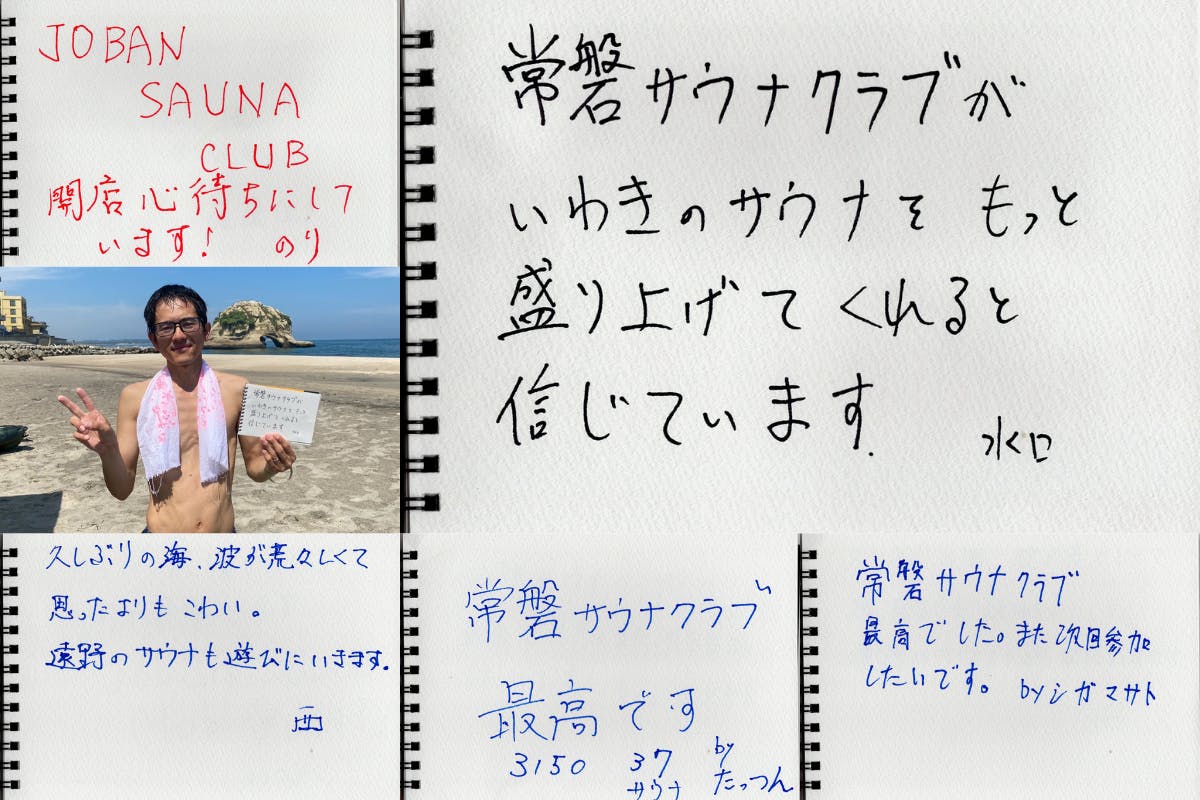 JOBAN
SAUNA
CLUB
開店心待ちにして
います! のり
常磐サウナクラブが
いわきのサウナを もっと
盛り上げてくれると
信じています.
水口
常磐サウナクラブが
いわきのサウナを もっと
盛り上げてくれると
信じています
久しぶりの海、波が荒々しくて
思ったよりも こわい。
遠野のサウナも遊びにいきます。
西
常磐サウナクラブ
最高です
3150 37 by
サウナ たっつん
常磐サウナクラブ
最高でした。また次回参加
したいです。 byシガマサト